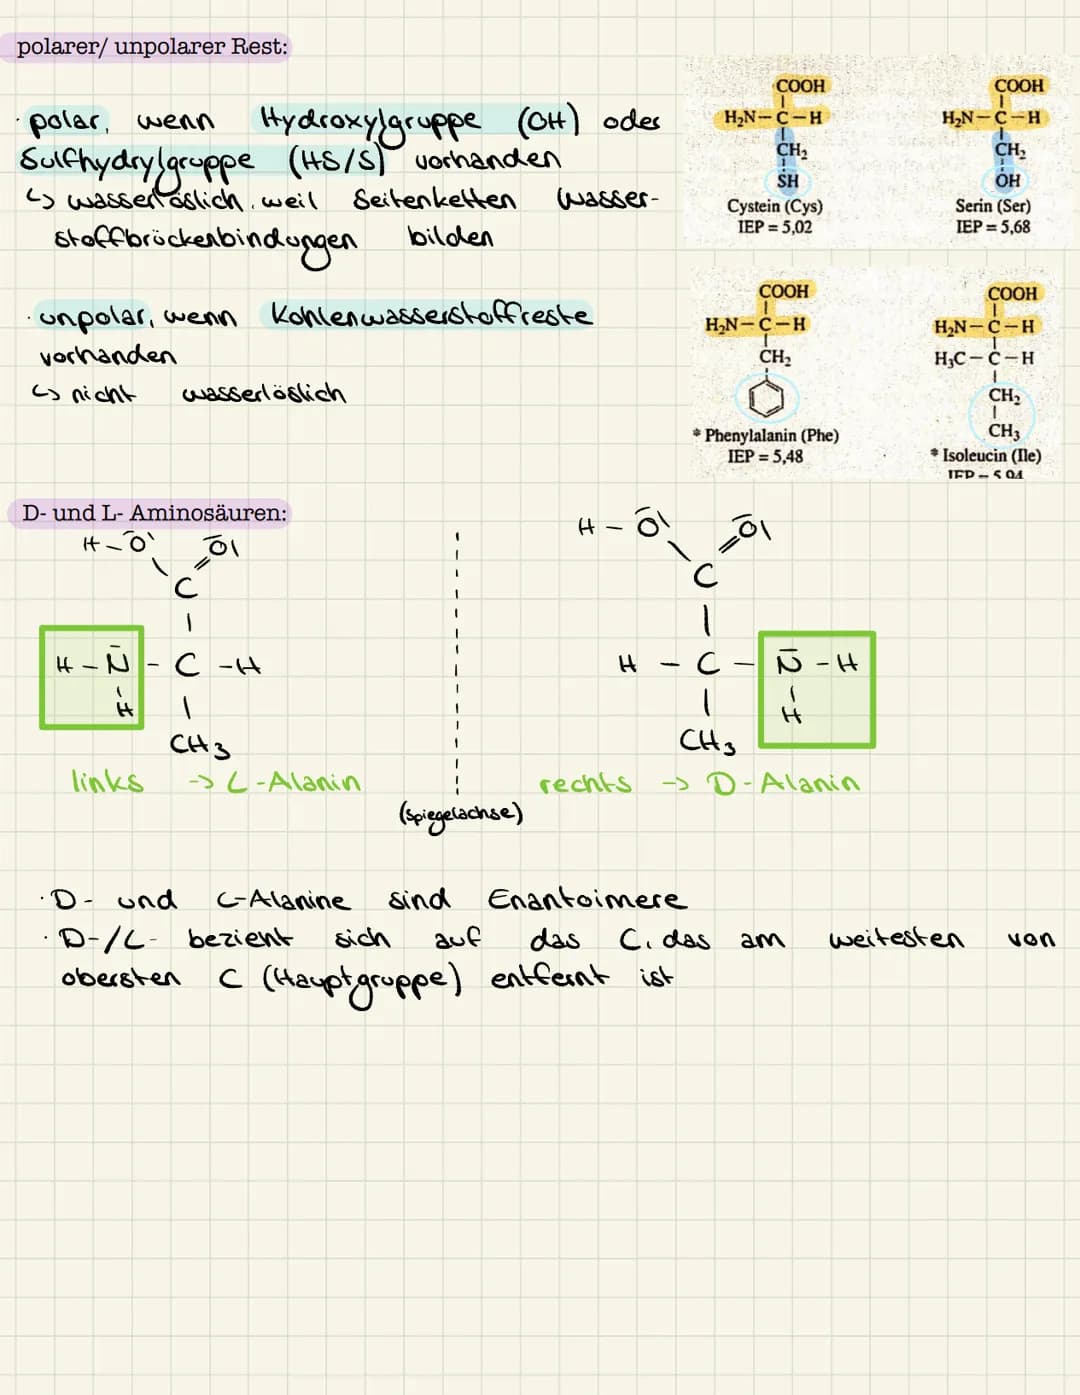 polarer/ unpolarer Rest:
· polar, wenn Hydroxylgruppe (OH) oder
Sulfhydrylgruppe (HS/S) vorhanden
↳ wasserlöslich, weil Seitenketten Wasser-
stoffbrückenbindungen bilden
· unpolar, wenn Kohlenwasserstoffreste
vorhanden
↳ nicht wasserlöslich
COOH
H₂N-C-H
CH₂
SH
Cystein (Cys)
IEP = 5,02
COOH
H₂N-C-H
CH₂
OH
Serin (Ser)
IEP = 5,68
COOH
H₂N-C-H
CH₂
* Phenylalanin (Phe)
IEP = 5,48
COOH
H₂N-C-H
H₃C-C-H
CH₂
CH₃
* Isoleucin (Ile)
IEP = 5,94
D- und L- Aminosäuren:
H-O O
C
H-N-C-H
H
CH₃
links -> L-Alanin
(Spiegelachse)
H-O O
C
H-C-N-H
H
CH₃
rechts -> D-Alanin
· D- und L-Alanine sind Enantoimere
· D-/L- bezieht sich auf das C, das am weitesten von
obersten C (Hauptgruppe) entfernt ist